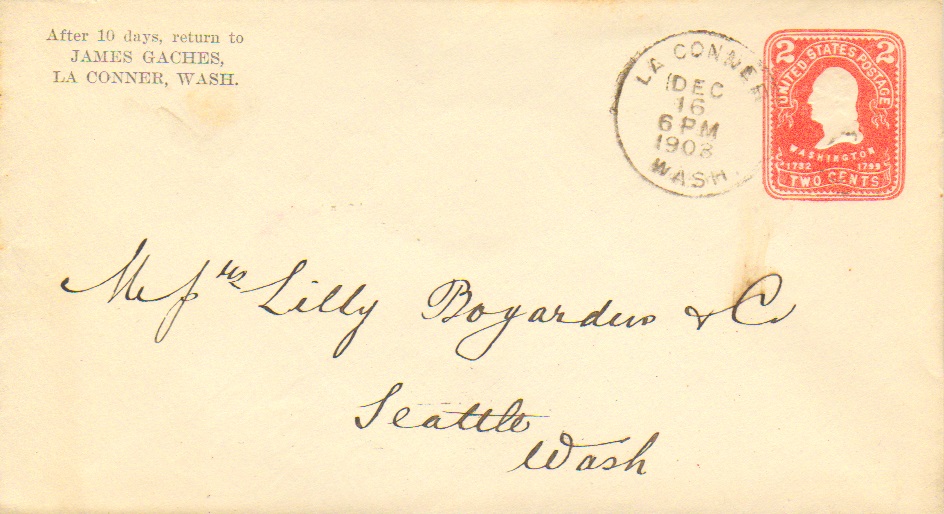 After 10 days, return to
JAMES GACHES,
LA CONNER, WASH.
LA CONNER
DEC
16
6 PM
1903
WASH.
2 2
UNITED STATES POSTAGE
WASHINGTON
1732 1799
TWO CENTS
Messrs Lilly Bogardus & Co
Seattle
Wash